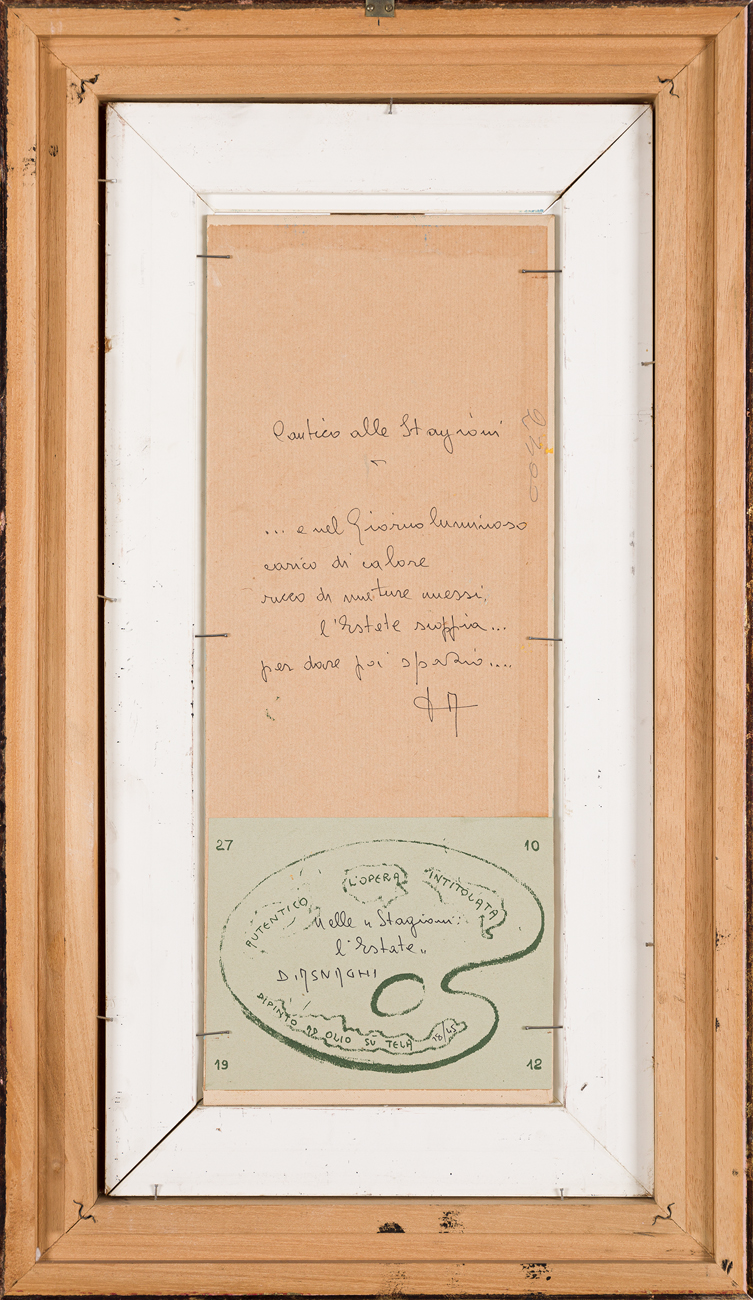 Cantico alle Stagioni
2700
... e nel Giorno luminoso
carico di calore
ricco di mature messi,
l'Estate scoppia...
per dare poi spazio....
27
10
AUTENTICO
L'OPERA
INTITOLATA
Nelle "Stagioni:
l'Estate"
DIASNAGHI
DIPINTO AD OLIO SU TELA
18/45
19
12